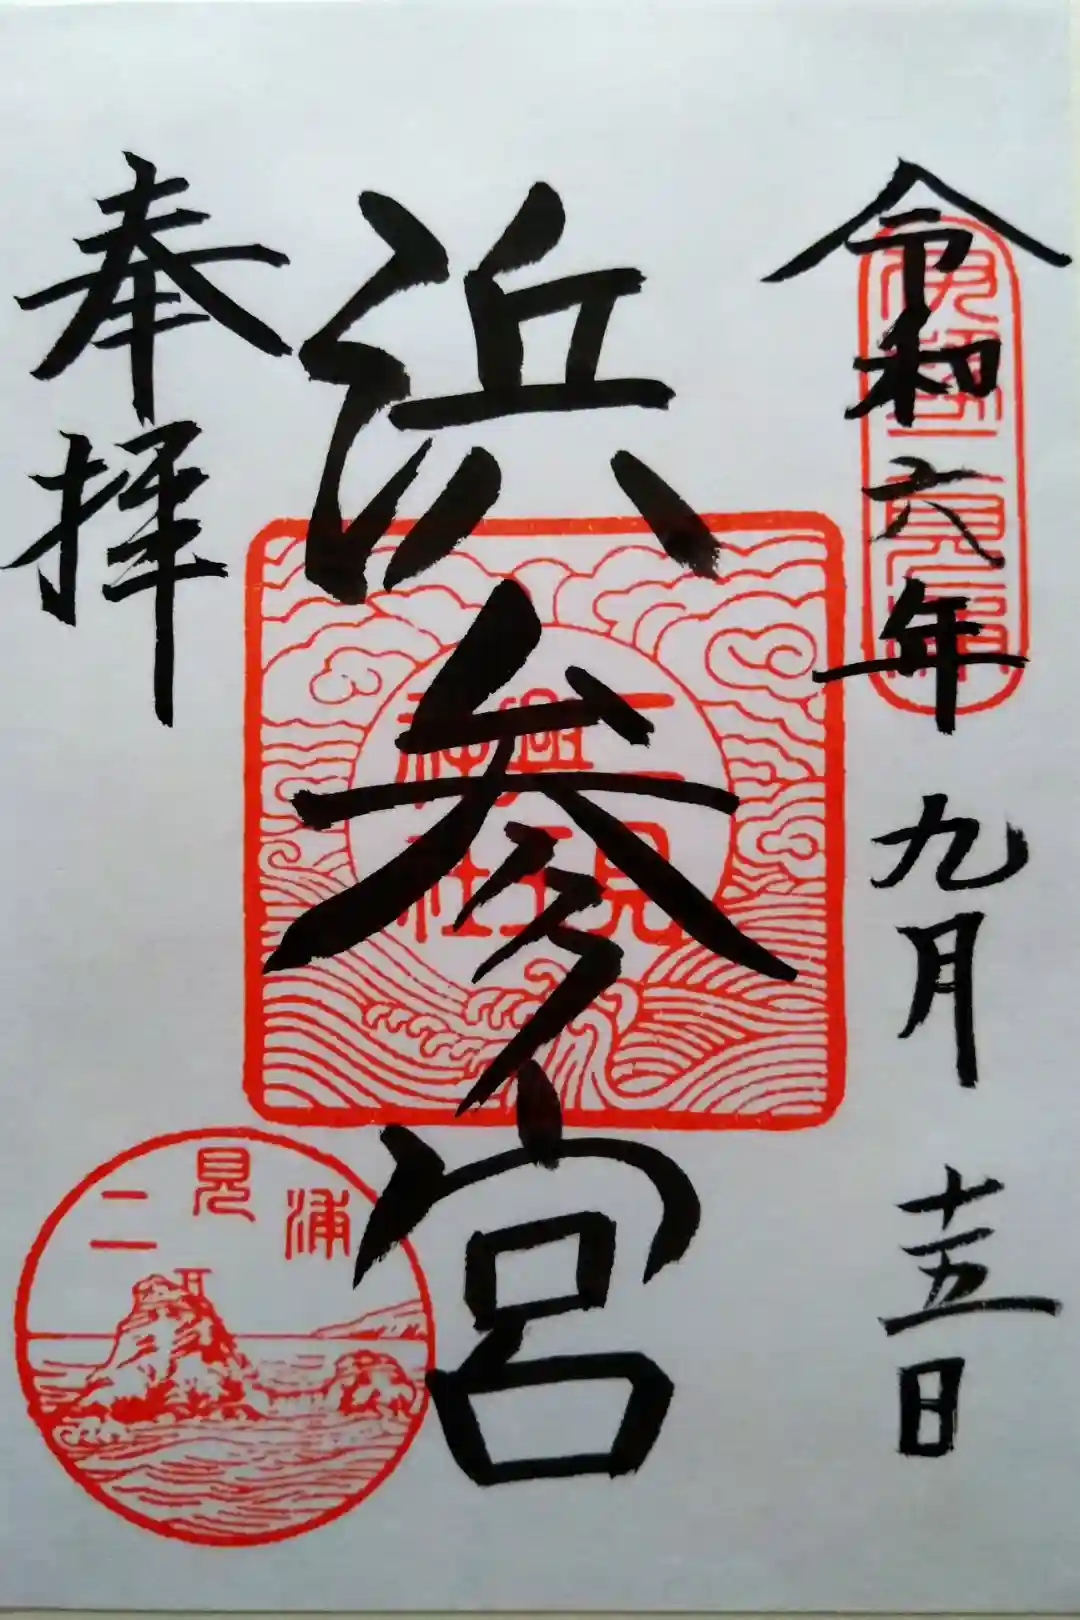 令和六年九月十五日
伊勢二見浦
浜参宮
二見
興玉
神社
奉拝
二見浦